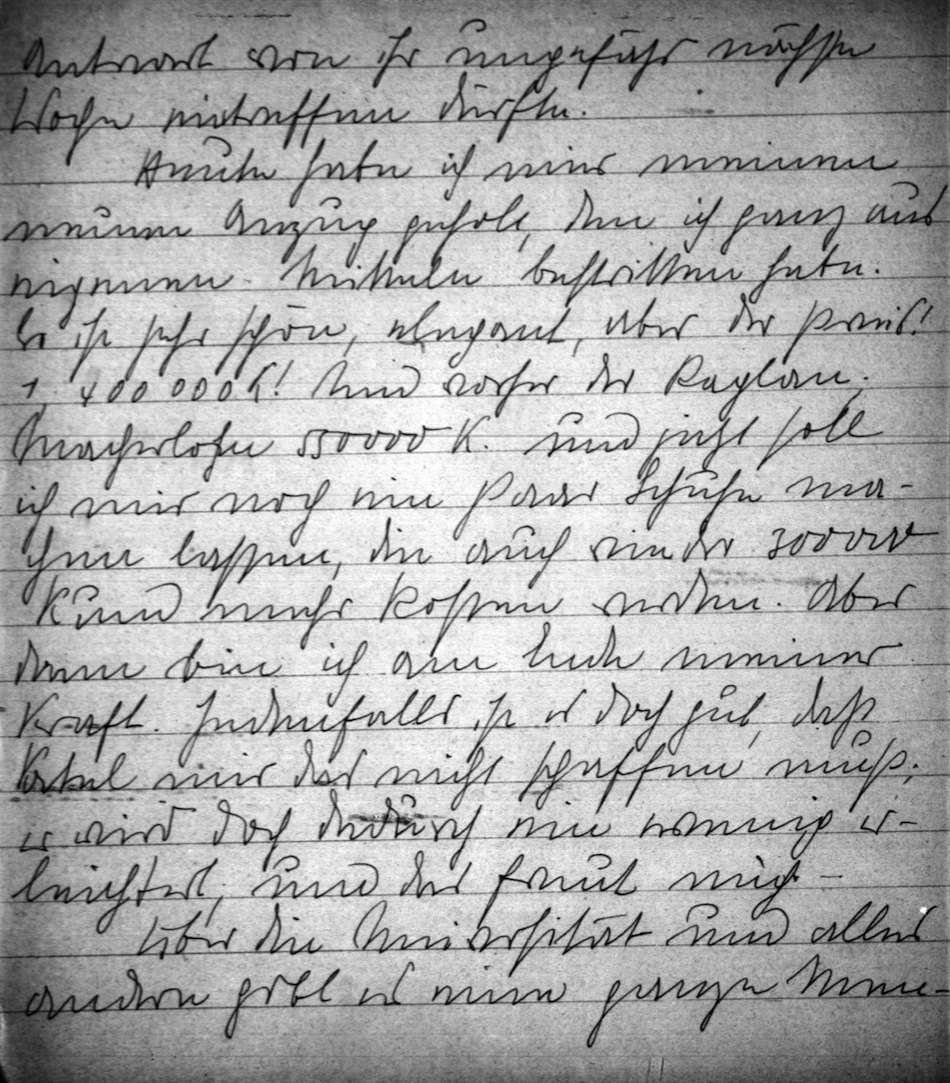 Antwort von ihr ungefähr nächste
Woche eintreffen dürfte.
Heute habe ich mir meinen
neuen Anzug geholt, den ich ganz aus
eigenen Mitteln bestritten habe.
Er ist sehr schön, elegant, aber der Preis!
1,400000 K! Und vorher der Raglan,
Macherlohn 550000 K. und jetzt soll
ich mir noch ein Paar Schuhe ma-
chen lassen, die auch wieder 300000
K und mehr kosten werden. Aber
dann bin ich am Ende meiner
Kraft. Jedenfalls ist es doch gut, daß
mir das nicht schaffen muß;
er wird doch dadurch ein wenig er-
leichtert, und das freut mich. –
Über die Universität und alles
andere gibt es eine ganze Men-